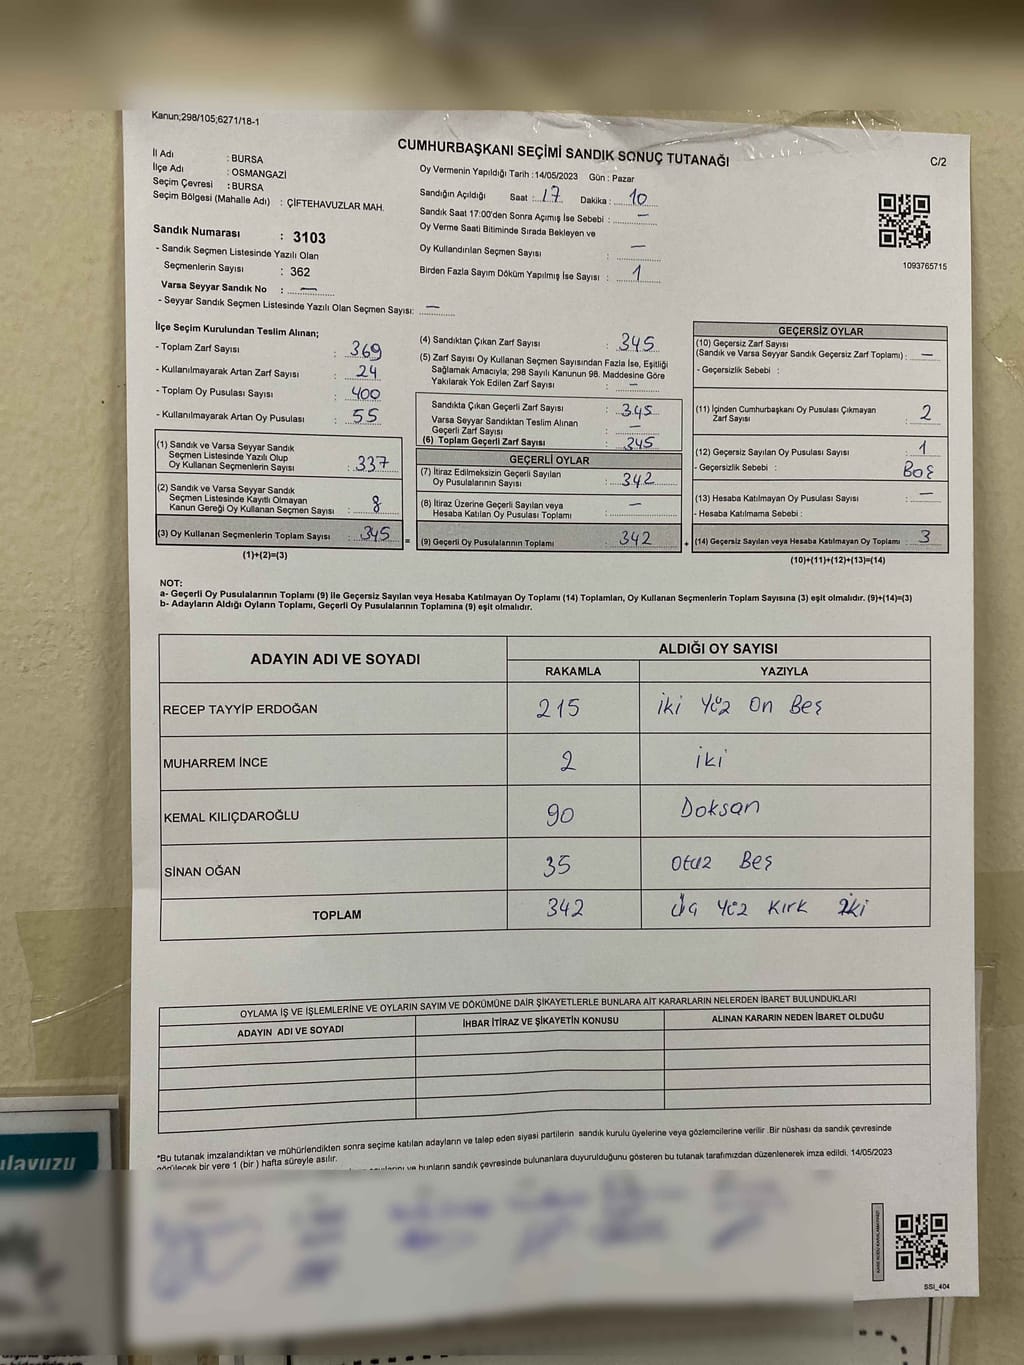 Kanun;298/105;6271/18-1
CUMHURBAŞKANI SEÇİMİ SANDIK SONUÇ TUTANAĞI
C/2
İl Adı : BURSA
İlçe Adı : OSMANGAZİ
Seçim Çevresi : BURSA
Seçim Bölgesi (Mahalle Adı) : ÇİFTEHAVUZLAR MAH.
Sandık Numarası : 3103
- Sandık Seçmen Listesinde Yazılı Olan
Seçmenlerin Sayısı : 362
Varsa Seyyar Sandık No : —
- Seyyar Sandık Seçmen Listesinde Yazılı Olan Seçmen Sayısı: —
Oy Vermenin Yapıldığı Tarih :14/05/2023 Gün : Pazar
Sandığın Açıldığı Saat : 17 Dakika : 10
Sandık Saat 17:00'den Sonra Açımış İse Sebebi : —
Oy Verme Saati Bitiminde Sırada Bekleyen ve
Oy Kullandırılan Seçmen Sayısı : —
Birden Fazla Sayım Döküm Yapılmış İse Sayısı : 1
1093765715
İlçe Seçim Kurulundan Teslim Alınan;
- Toplam Zarf Sayısı : 369
- Kullanılmayarak Artan Zarf Sayısı : 24
- Toplam Oy Pusulası Sayısı : 400
- Kullanılmayarak Artan Oy Pusulası : 55
(1) Sandık ve Varsa Seyyar Sandık
Seçmen Listesinde Yazılı Olup
Oy Kullanan Seçmenlerin Sayısı : 337
(2) Sandık ve Varsa Seyyar Sandık
Seçmen Listesinde Kayıtlı Olmayan
Kanun Gereği Oy Kullanan Seçmen Sayısı : 8
(3) Oy Kullanan Seçmenlerin Toplam Sayısı : 345
(1)+(2)=(3)
(4) Sandıktan Çıkan Zarf Sayısı : 345
(5) Zarf Sayısı Oy Kullanan Seçmen Sayısından Fazla İse, Eşitliği
Sağlamak Amacıyla; 298 Sayılı Kanunun 98. Maddesine Göre
Yakılarak Yok Edilen Zarf Sayısı : —
Sandıkta Çıkan Geçerli Zarf Sayısı : 345
Varsa Seyyar Sandıktan Teslim Alınan
Geçerli Zarf Sayısı : —
(6) Toplam Geçerli Zarf Sayısı : 345
GEÇERLİ OYLAR
(7) İtiraz Edilmeksizin Geçerli Sayılan
Oy Pusulalarının Sayısı : 342
(8) İtiraz Üzerine Geçerli Sayılan veya
Hesaba Katılan Oy Pusulası Toplamı : —
= (9) Geçerli Oy Pusulalarının Toplamı : 342 +
GEÇERSİZ OYLAR
(10) Geçersiz Zarf Sayısı
(Sandık ve Varsa Seyyar Sandık Geçersiz Zarf Toplamı) : —
- Geçersizlik Sebebi :
(11) İçinden Cumhurbaşkanı Oy Pusulası Çıkmayan
Zarf Sayısı : 2
(12) Geçersiz Sayılan Oy Pusulası Sayısı : 1
- Geçersizlik Sebebi : Boş
(13) Hesaba Katılmayan Oy Pusulası Sayısı : —
- Hesaba Katılmama Sebebi :
(14) Geçersiz Sayılan veya Hesaba Katılmayan Oy Toplamı : 3
(10)+(11)+(12)+(13)=(14)
NOT:
a- Geçerli Oy Pusulalarının Toplamı (9) ile Geçersiz Sayılan veya Hesaba Katılmayan Oy Toplamı (14) Toplamları, Oy Kullanan Seçmenlerin Toplam Sayısına (3) eşit olmalıdır. (9)+(14)=(3)
b- Adayların Aldığı Oyların Toplamı, Geçerli Oy Pusulalarının Toplamına (9) eşit olmalıdır.
ADAYIN ADI VE SOYADI ALDIĞI OY SAYISI
RAKAMLA YAZIYLA
RECEP TAYYİP ERDOĞAN 215 iki Yüz On Beş
MUHARREM İNCE 2 iki
KEMAL KILIÇDAROĞLU 90 Doksan
SİNAN OĞAN 35 Otuz Beş
TOPLAM 342 Üç Yüz Kırk İki
OYLAMA İŞ VE İŞLEMLERİNE VE OYLARIN SAYIM VE DÖKÜMÜNE DAİR ŞİKAYETLERLE BUNLARA AİT KARARLARIN NELERDEN İBARET BULUNDUKLARI
ADAYIN ADI VE SOYADI İHBAR İTİRAZ VE ŞİKAYETİN KONUSU ALINAN KARARIN NEDEN İBARET OLDUĞU
*Bu tutanak imzalandıktan ve mühürlendikten sonra seçime katılan adayların ve talep eden siyasi partilerin sandık kurulu üyelerine veya gözlemcilerine verilir .Bir nüshası da sandık çevresinde
görülecek bir yere 1 (bir ) hafta süreyle asılır.
ve bunların sandık çevresinde bulunanlara duyurulduğunu gösteren bu tutanak tarafımızdan düzenlenerek imza edildi. 14/05/2023
SSİ_404